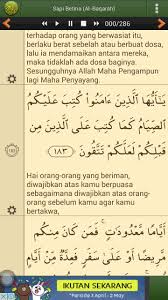 Sapi Betina (Al-Baqarah)
000/286
terhadap orang yang berwasiat itu,
berlaku berat sebelah atau berbuat dosa,
lalu ia mendamaikan antara mereka,
maka tidaklah ada dosa baginya.
Sesungguhnya Allah Maha Pengampun
lagi Maha Penyayang.
يَـٰٓأَيُّهَا ٱلَّذِينَ ءَامَنُوا۟ كُتِبَ عَلَيْكُمُ
ٱلصِّيَامُ كَمَا كُتِبَ عَلَى ٱلَّذِينَ مِن
قَبْلِكُمْ لَعَلَّكُمْ تَتَّقُونَ ١٨٣
183
Hai orang-orang yang beriman,
diwajibkan atas kamu berpuasa
sebagaimana diwajibkan atas orang-
orang sebelum kamu agar kamu
bertakwa,
أَيَّامًا مَّعْدُودَٰتٍ ۚ فَمَن كَانَ مِنكُم
مَّرِيضًا أَوْ عَلَىٰ سَفَرٍ فَعِدَّةٌ مِّنْ أَيَّامٍ
IKUTAN SEKARANG
*Periode 3 April - 2 May